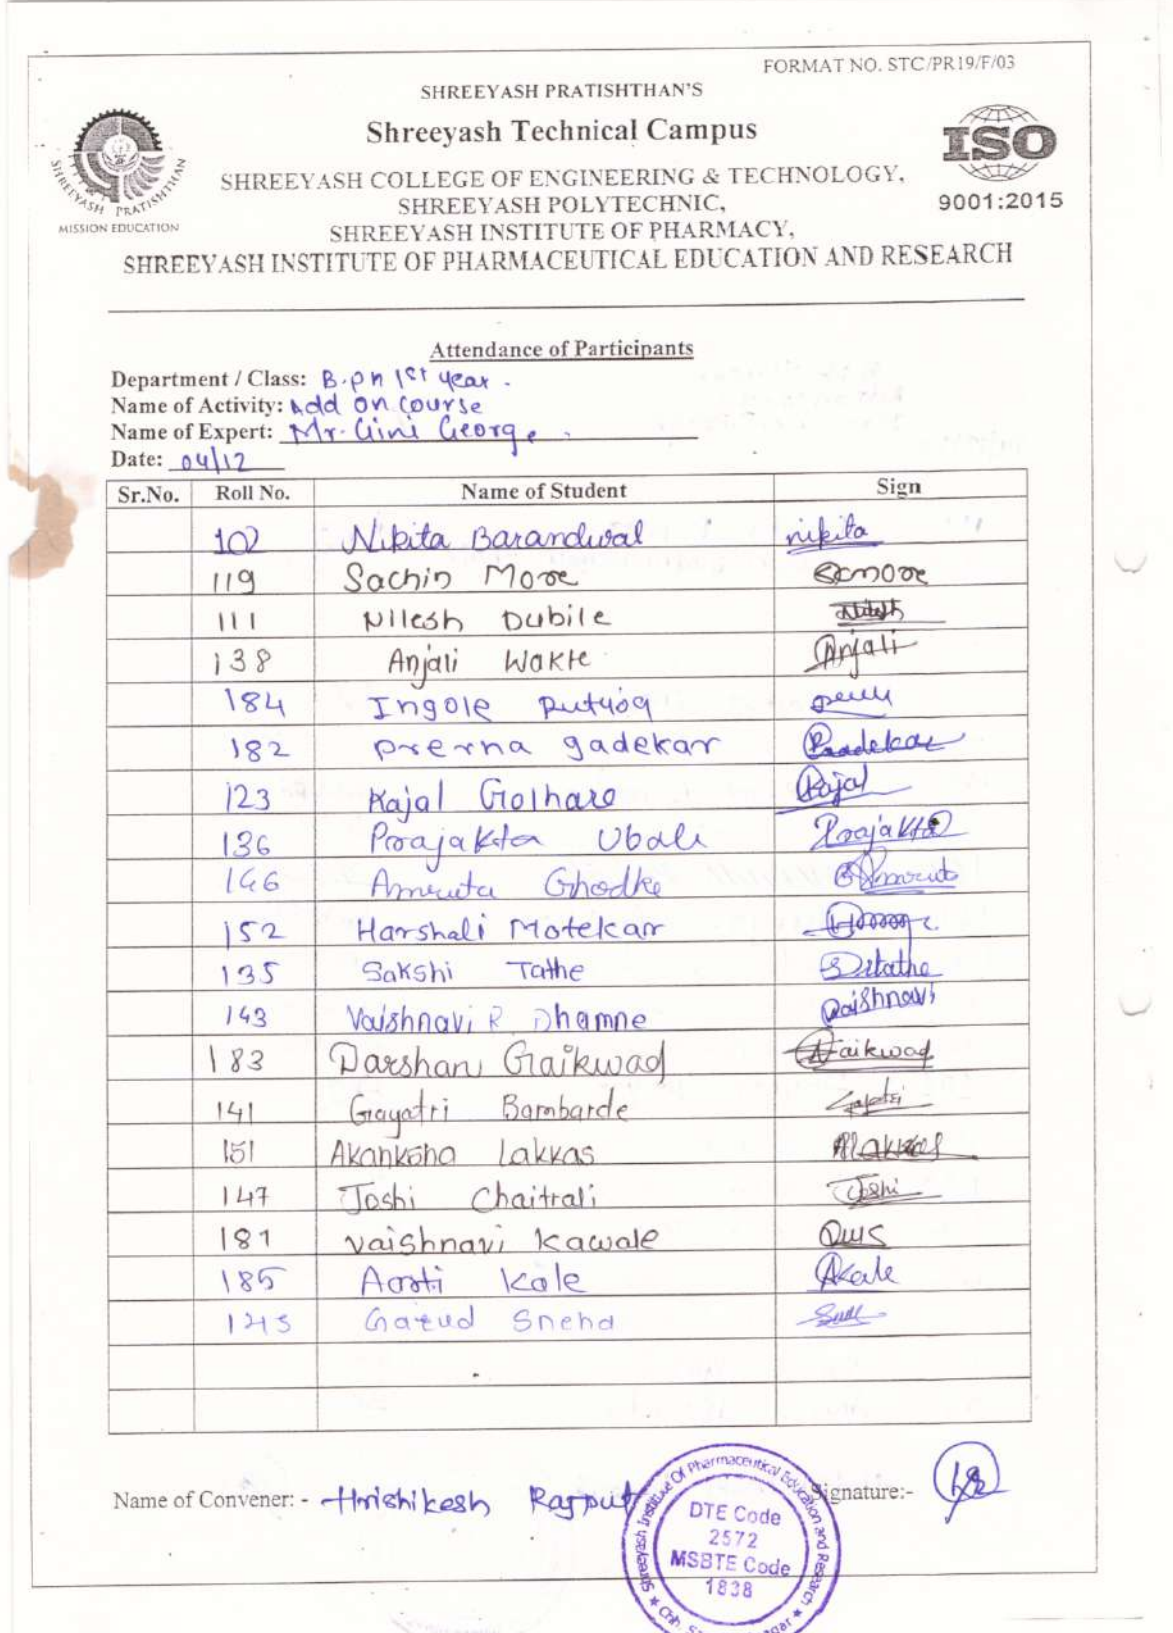 FORMAT NO. STC/PR19/F/03
SHREEYASH PRATISHTHAN'S
Shreeyash Technical Campus
SHREEYASH COLLEGE OF ENGINEERING & TECHNOLOGY,
SHREEYASH POLYTECHNIC,
SHREEYASH INSTITUTE OF PHARMACY,
SHREEYASH INSTITUTE OF PHARMACEUTICAL EDUCATION AND RESEARCH
SHREEYASH PRATISHTHAN
MISSION EDUCATION
ISO
9001:2015
Attendance of Participants
Department / Class: B.ph 1st year.
Name of Activity: Add on course
Name of Expert: Mr. Gini George.
Date: 04/12
Sr.No. Roll No. Name of Student Sign
102 Nikita Barandwal nikita
119 Sachin More SCmore
111 Nilesh Dubile Nilesh
138 Anjali Wakte Anjali
184 Ingole
182 prerna gadekar
123 Kajal Golhare Kajal
136 Prajakta Ubale Prajakta
146 Amruta Ghodke
152 Harshali Motekar
135 Sakshi Tathe
143 Vaishnavi R Dhamne Vaishnavi
183 Darshan Gaikwad Gaikwad
141 Gayatri Bambarde Gayatri
151 Akanksha Lakkas
147 Joshi Chaitrali Joshi
181 vaishnavi kawale
185 Aarti Kale AKale
145 Garud Sneha
Name of Convener: - Hrishikesh Rajput Signature:-
Shreeyash Institute Of Pharmaceutical Education and Research
DTE Code
2572
MSBTE Code
1838